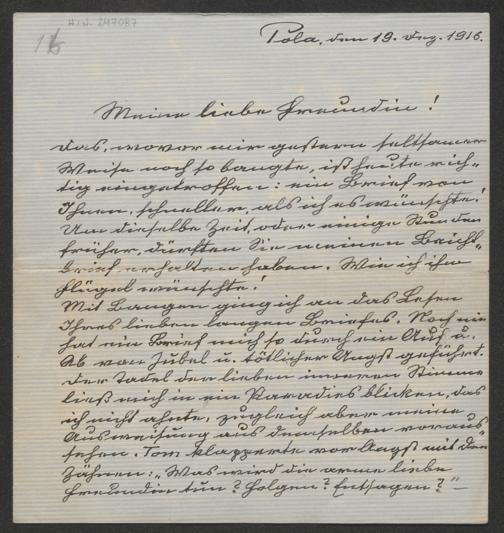 H.I.N. 247087
Pola, den 19. Dez. 1916.
Meine liebe Freundin!
Das, wovor mir gestern seltsamer
Weise noch so bangte, ist heute rich-
tig eingetroffen: ein Brief von
Ihnen, schneller, als ich es wünschte!
Um dieselbe Zeit, oder einige Stunden
früher, dürften Sie meinen Beicht-
brief erhalten haben. Wie ich ihm
Flügel wünschte!
Mit Bangen ging ich an das Lesen
Ihres lieben langen Briefes. Noch nie
hat ein Brief mich so durch ein Auf u.
Ab von Jubel u. tötlicher Angst geführt.
Der Tadel der lieben inneren Stimme
ließ mich in ein Paradies blicken, das
ich nicht ahnte, zugleich aber meine
Ausweisung aus demselben voraus-
sehen. Tom klapperte vor Angst mit den
Zähnen: „Was wird die arme liebe
Freundin tun? Folgen? Entsagen?"–